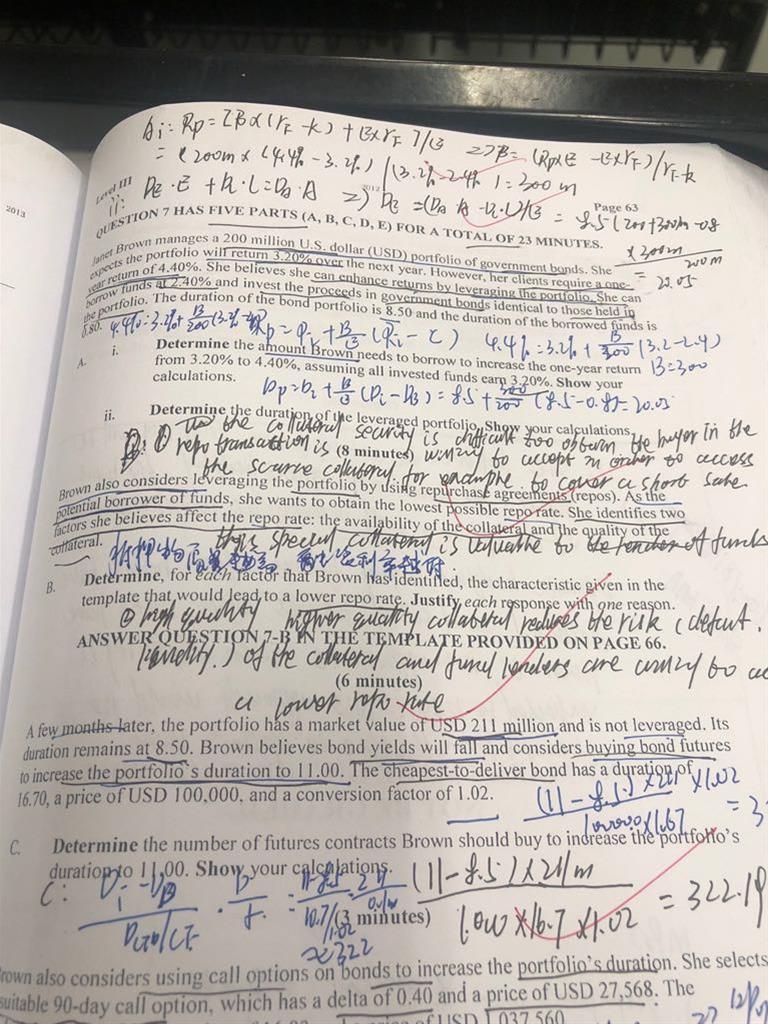 Ai: Rp = [B×(rF-k) + E×rF]/E => B = (Rp×E - E×rF)/rF-k
= (200m × (4.4% - 3.2%) / (3.2% - 2.4%) = 300 m
Level III
2012
ii: DE·E + DL·L = DA·A => DE = (DA·A - DL·L)/E = 8.5(200+300)m - 0.8
2013
Page 63
QUESTION 7 HAS FIVE PARTS (A, B, C, D, E) FOR A TOTAL OF 23 MINUTES.
×300m
200m
= 20.05
Janet Brown manages a 200 million U.S. dollar (USD) portfolio of government bonds. She
expects the portfolio will return 3.20% over the next year. However, her clients require a one-
year return of 4.40%. She believes she can enhance returns by leveraging the portfolio. She can
borrow funds at 2.40% and invest the proceeds in government bonds identical to those held in
the portfolio. The duration of the bond portfolio is 8.50 and the duration of the borrowed funds is
0.80.
4.4% = 3.2% + B/200 (3.2-2.4)
B=300
A. i. Determine the amount Brown needs to borrow to increase the one-year return
from 3.20% to 4.40%, assuming all invested funds earn 3.20%. Show your
calculations.
Dp = Di + B/E (Di - DB) = 8.5 + 300/200 (8.5-0.8) = 20.05
ii. Determine the duration of the leveraged portfolio. Show your calculations.
B: ① the collateral security is difficult too obtain, the buyer in the
repo transaction is willing to accept in order to access
(8 minutes)
the scarce collateral for example to cover a short sale
Brown also considers leveraging the portfolio by using repurchase agreements (repos). As the
potential borrower of funds, she wants to obtain the lowest possible repo rate. She identifies two
factors she believes affect the repo rate: the availability of the collateral and the quality of the
collateral.
this special collateral is valuable to the lender of funds
B. Determine, for each factor that Brown has identified, the characteristic given in the
template that would lead to a lower repo rate. Justify each response with one reason.
② high quality higher quality collateral reduces the risk (defaut,
ANSWER QUESTION 7-B IN THE TEMPLATE PROVIDED ON PAGE 66.
liquidity.) of the collateral and fund lenders are willing to
(6 minutes)
a lower repo rate
A few months later, the portfolio has a market value of USD 211 million and is not leveraged. Its
duration remains at 8.50. Brown believes bond yields will fall and considers buying bond futures
to increase the portfolio's duration to 11.00. The cheapest-to-deliver bond has a duration of
16.70, a price of USD 100,000, and a conversion factor of 1.02.
C. Determine the number of futures contracts Brown should buy to increase the portfolio's
duration to 11.00. Show your calculations.
(3 minutes)
C: (11-8.5)×211m = 322.19
≈322
Brown also considers using call options on bonds to increase the portfolio's duration. She selects
suitable 90-day call option, which has a delta of 0.40 and a price of USD 27,568. The
of USD 1,037,560